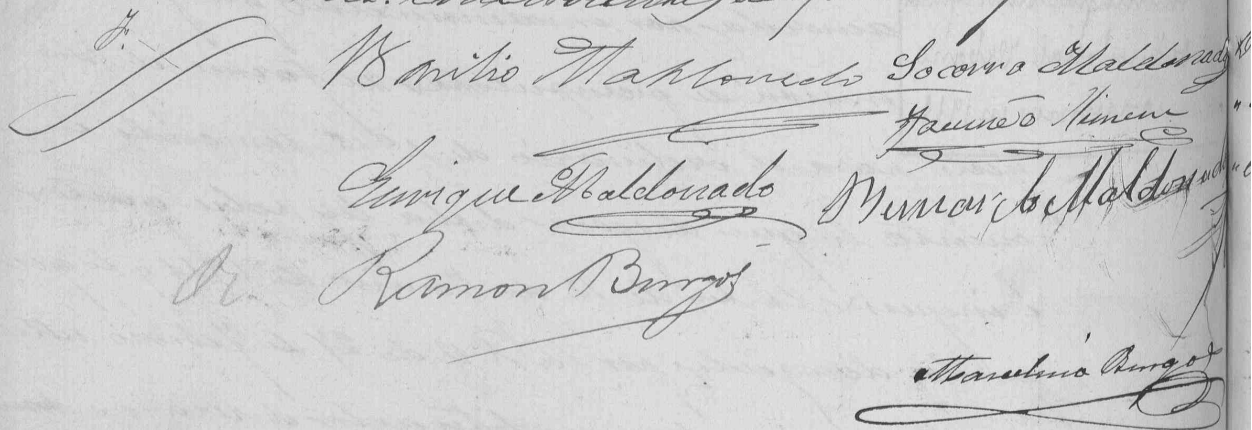 J.
Basilio Maldonado Socorro Maldonado
Jacinto Jimene
Enrique Maldonado Bernardo Maldonado
Ramon Burgos
Marcelino Burgos